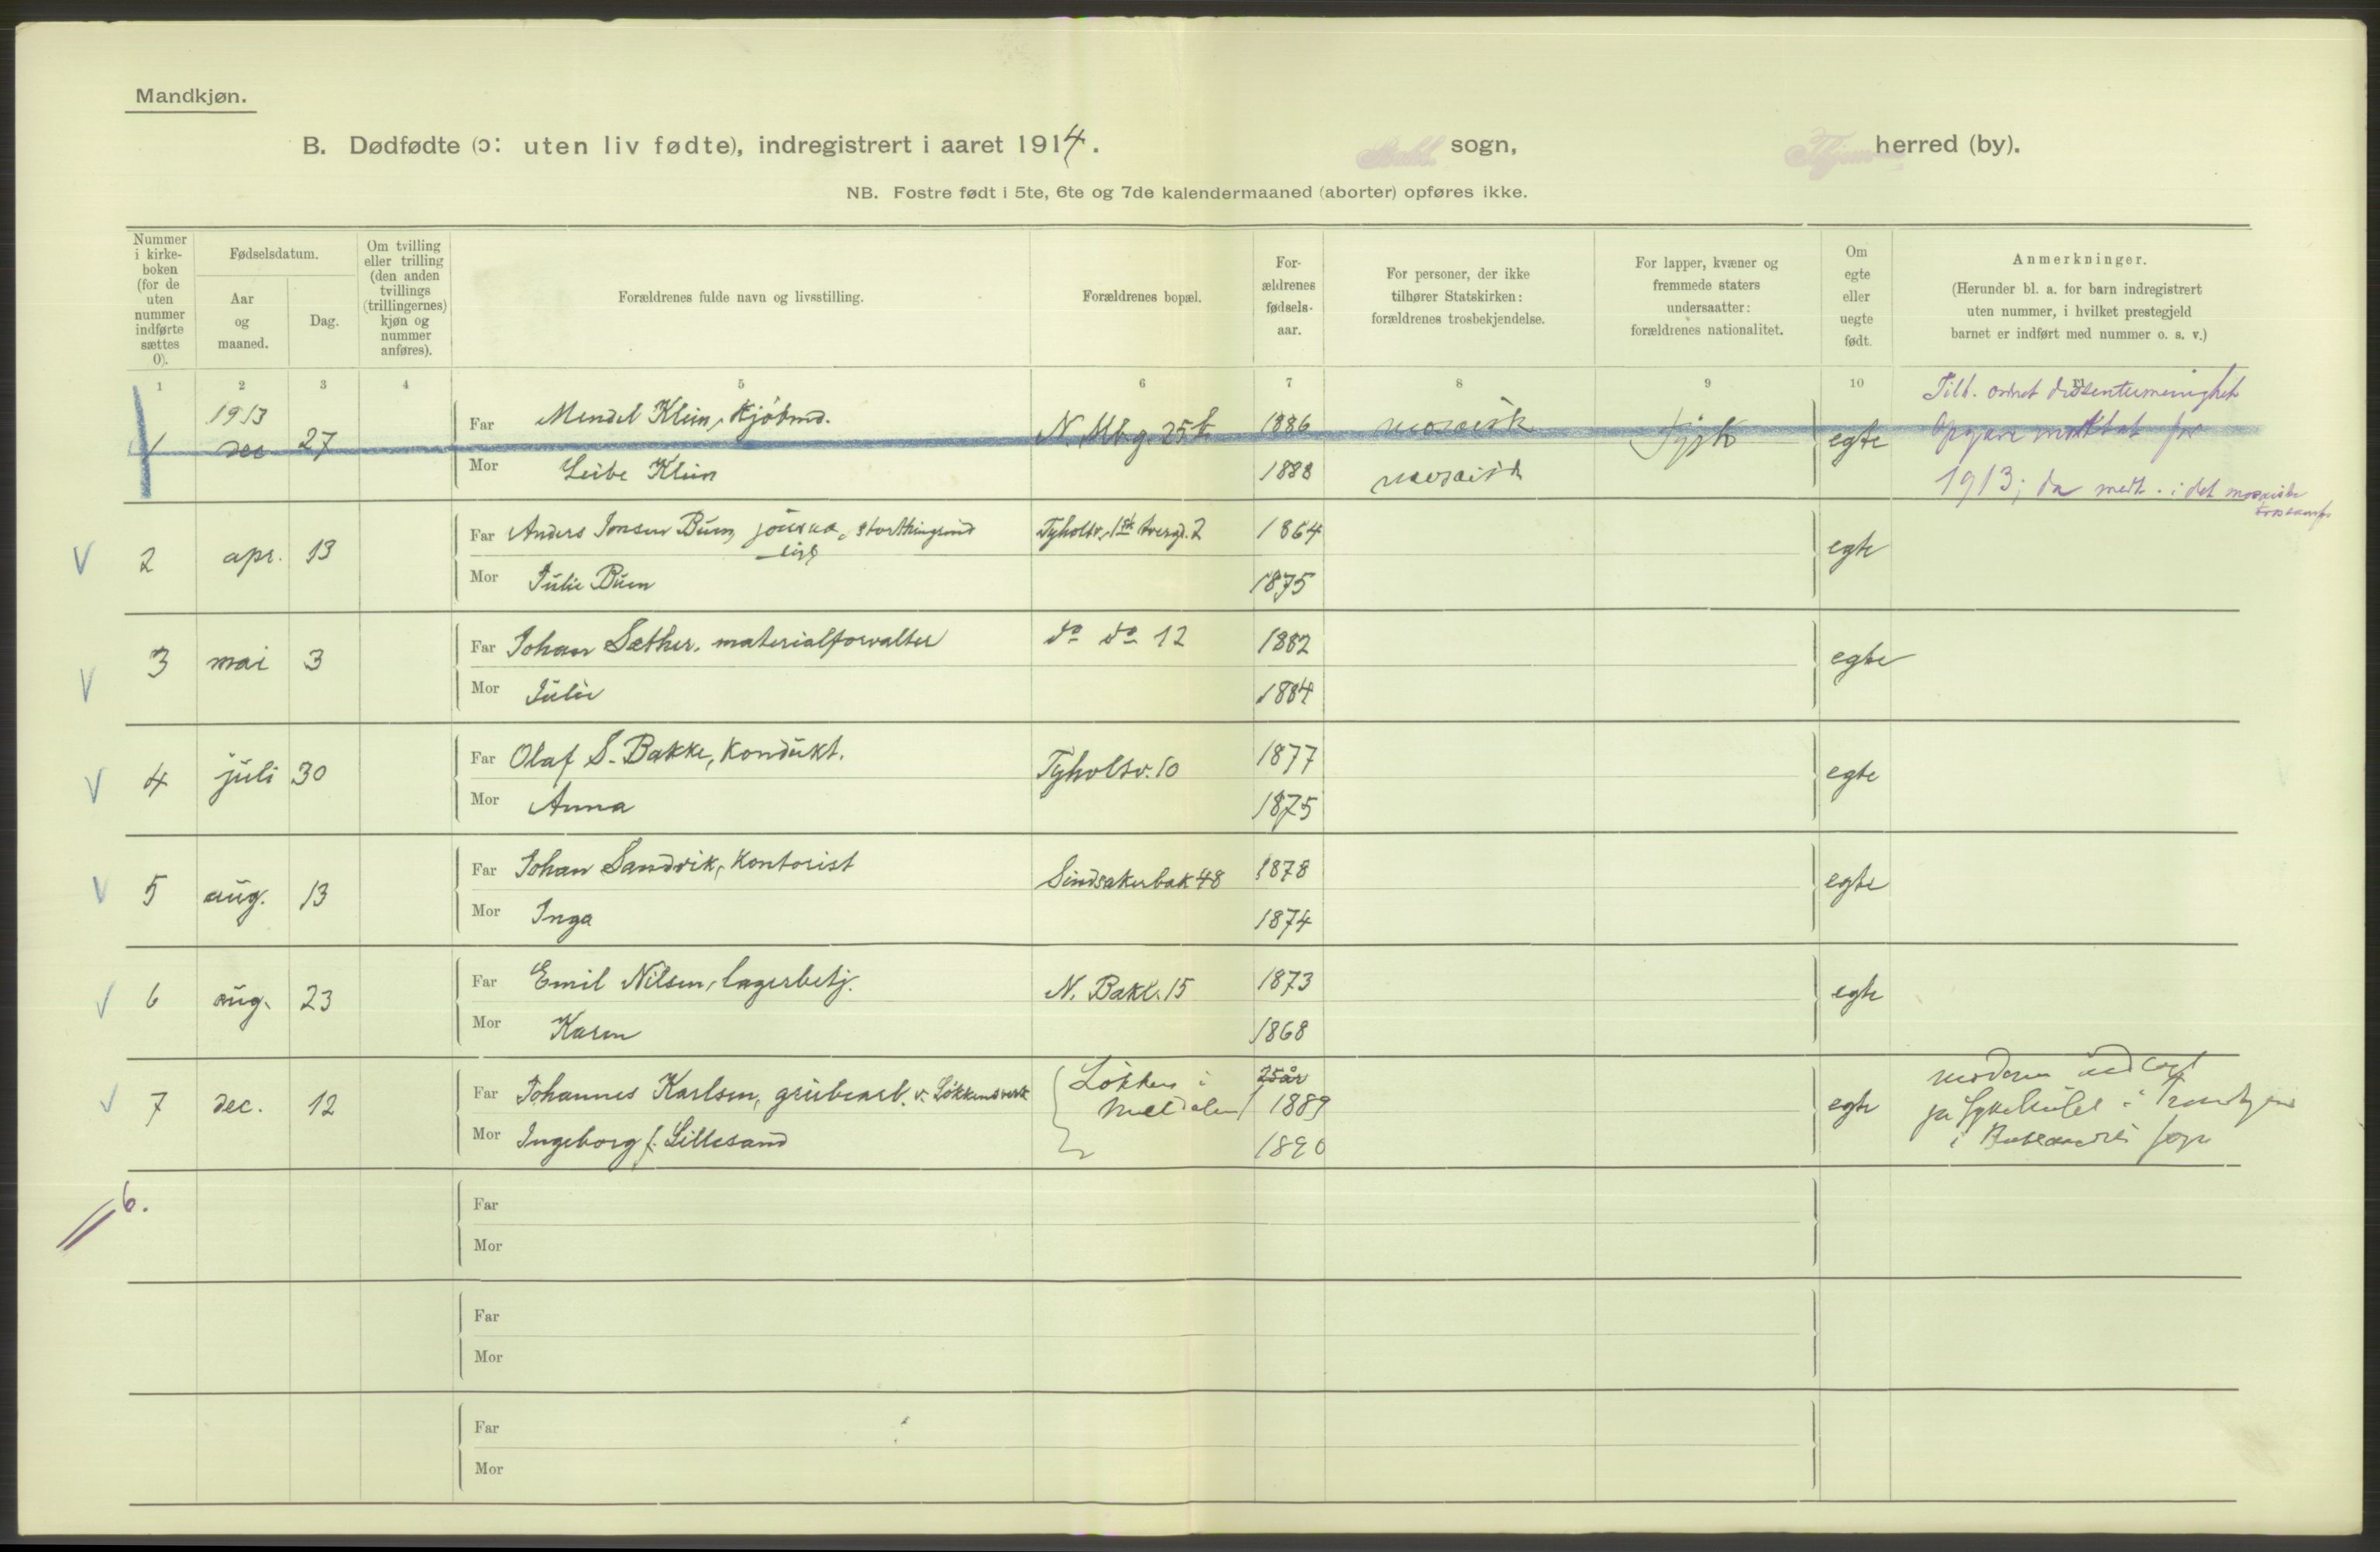 Mandkjøn.
B. Dødfødte (ɔ: uten liv fødte), indregistrert i aaret 1914. Bakl. sogn, Thjem herred (by).
NB. Fostre født i 5te, 6te og 7de kalendermaaned (aborter) opføres ikke.
Nummer i kirke-boken (for de uten nummer indførte sættes 0).
Fødselsdatum.
Aar og maaned.
Dag.
Om tvilling eller trilling (den anden tvillings (trillingernes) kjøn og nummer anføres).
Forældrenes fulde navn og livsstilling.
Forældrenes bopæl.
For-ældrenes fødsels-aar.
For personer, der ikke tilhører Statskirken: forældrenes trosbekjendelse.
For lapper, kvæner og fremmede staters undersaatter: forældrenes nationalitet.
Om egte eller uegte født.
Anmerkninger.
(Herunder bl. a. for barn indregistrert uten nummer, i hvilket prestegjeld barnet er indført med nummer o. s. v.)
1 2 3 4 5 6 7 8 9 10 11
1 1913 dec 27 Far Mendel Klein, Kjøbmd. 1886 mosaisk egte
Mor Leibe Klein 1888 mosaisk
1913; da medt. i det mosaiske
2 apr. 13 Far Anders Jonsen Buen, storthingsmd Tyholtv. 1ste tverg. 2 1864 egte
Mor Julie Buen 1875
3 mai 3 Far Johan Sæther, materialforvalter do do 12 1882 egte
Mor Julie 1884
4 juli 30 Far Olaf S. Bakke, Kondukt. Tyholtv. 10 1877 egte
Mor Anna 1875
5 aug. 13 Far Johan Sandvik, Kontorist Sindsakerbak 48 1878 egte
Mor Inga 1874
6 aug. 23 Far Emil Nilsen, lagerbetj. N. Bakl. 15 1873 egte
Mor Karen 1868
7 dec. 12 Far Johannes Karlsen, grubearb. v. Løkkensverk Løkken i Meldalen 25 år 1889 egte
Mor Ingeborg f. Lillesand 1890
moderen indlagt
på Sykehuset i Trondhjem
i Bakelandets sogn
6.
Far
Mor
Far
Mor
Far
Mor